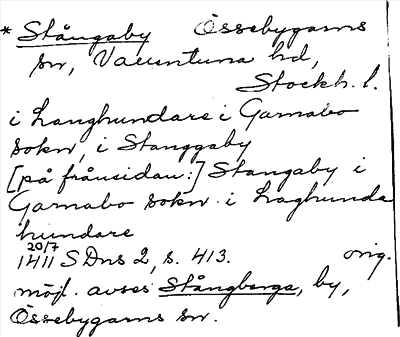 * Stångaby Össebygarns
sn, Vallentuna hd,
Stockh. l.
i Langhundare i Garnabo
sokn, i Stanggaby
[på frånsidan:] Stangaby i
Garnabo sokn i Laghunda
hundare
20/7
1411 SDns 2, s. 413. orig.
möjl. avses Stångberga, by,
Össebygarns sn.